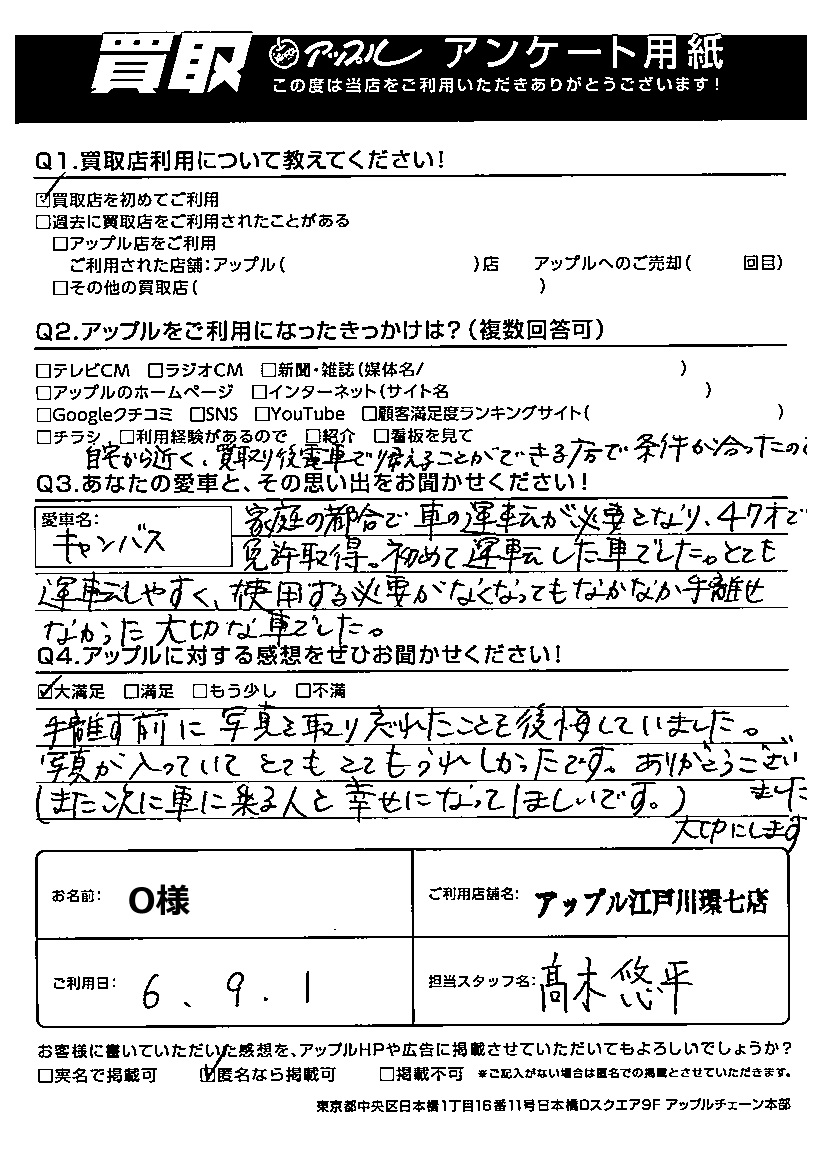 買取 アップル アンケート用紙
この度は当店をご利用いただきありがとうございます!
Q1.買取店利用について教えてください!
☑買取店を初めてご利用
□過去に買取店をご利用されたことがある
□アップル店をご利用
ご利用された店舗:アップル( )店 アップルへのご売却( 回目)
□その他の買取店( )
Q2.アップルをご利用になったきっかけは?(複数回答可)
□テレビCM □ラジオCM □新聞・雑誌(媒体名/ )
□アップルのホームページ □インターネット(サイト名 )
□Googleクチコミ □SNS □YouTube □顧客満足度ランキングサイト( )
□チラシ □利用経験があるので □紹介 □看板を見て
自宅から近く、買取り後電車で帰えることができる店で条件が合ったので
Q3.あなたの愛車と、その思い出をお聞かせください!
愛車名:
キャンバス
家庭の都合で車の運転が必要となり、47才で
免許取得。初めて運転した車でした。とても
運転しやすく、使用する必要がなくなってもなかなか手離せ
なかった大切な車でした。
Q4.アップルに対する感想をぜひお聞かせください!
☑大満足 □満足 □もう少し □不満
手離す前に写真を取り忘れたことを後悔していました。
写真が入っていてとてもとてもうれしかったです。ありがとうござい
ました
(また次に車に乗る人と幸せになってほしいです。)
大切にします
お名前: O様
ご利用店舗名: アップル江戸川環七店
ご利用日: 6、9.1
担当スタッフ名: 髙木悠平
お客様に書いていただいた感想を、アップルHPや広告に掲載させていただいてもよろしいでしょうか?
□実名で掲載可 ☑匿名なら掲載可 □掲載不可 *ご記入がない場合は匿名での掲載とさせていただきます。
東京都中央区日本橋1丁目16番11号日本橋Dスクエア9F アップルチェーン本部